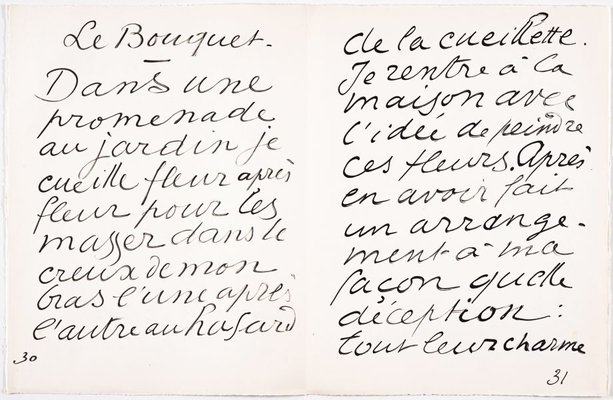 Le Bouquet.
Dans une
promenade
au jardin je
cueille fleur après
fleur pour les
masser dans le
creux de mon
bras l'une après
l'autre au hasard
30
de la cueillette.
Je rentre à la
maison avec
l'idée de peindre
ces fleurs. Après
en avoir fait
un arrange-
ment à ma
façon quelle
déception :
tout leur charme
31